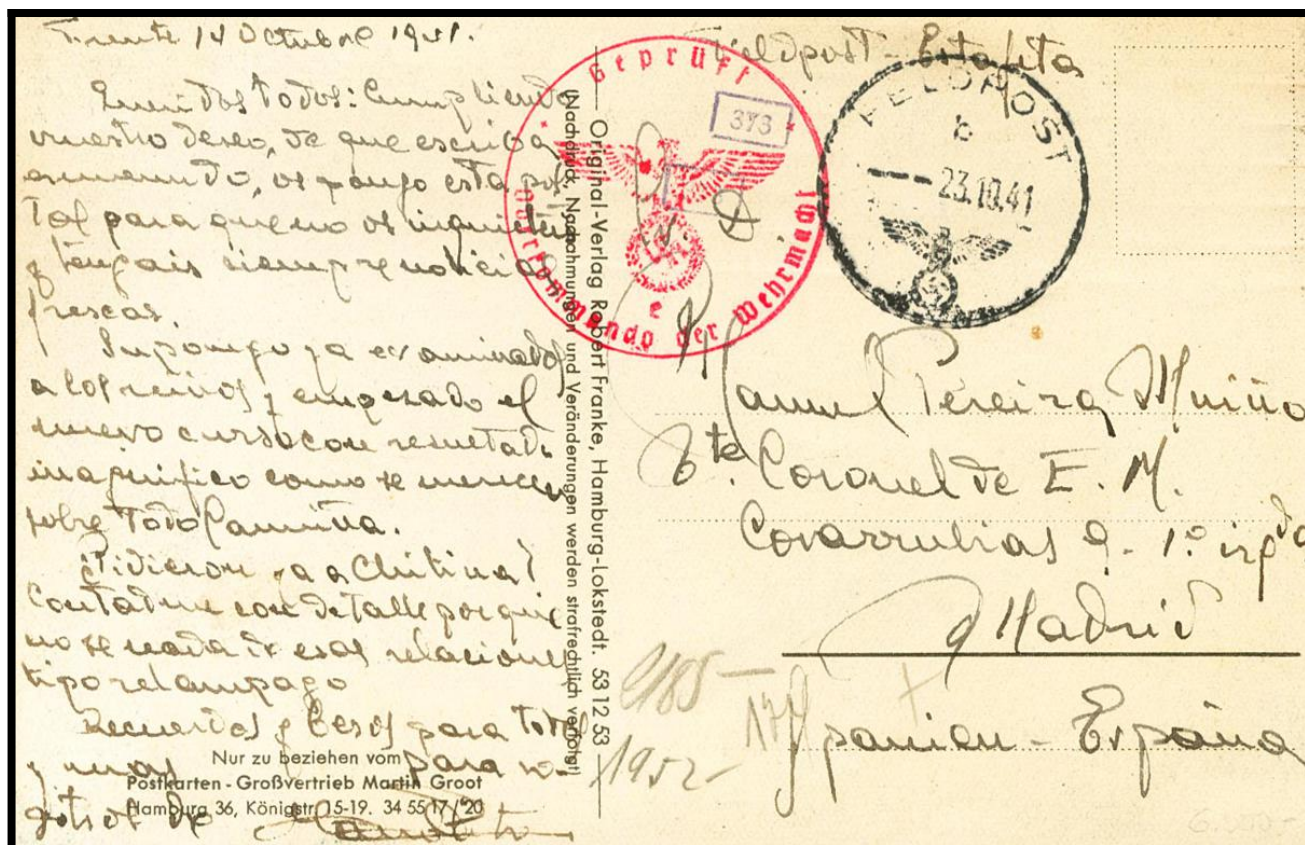 Frente 14 Octubre 1941.
todos: Cumpliendo
vuestro deseo, de que escriba
os pongo esta pos
tal para que no os inquieteis
y tengais siempre noticias
frescas.
Supongo ya examinados
a los y empezado el
nuevo curso con resultado
magnifico como se merecen
sobre todo
¿Pidieron ya a Chitina?
Contadme con detalle porque
no se nada de esas relaciones
tipo relampago
Recuerdos y besos para todos
y para
de
Nur zu beziehen vom
Postkarten-Großvertrieb Martin Groot
Hamburg 36, Königstr. 15-19. 34 55 17/20
Original-Verlag Robert Franke, Hamburg-Lokstedt. 53 12 53
(Nachdruck, Nachahmungen und Veränderungen werden strafrechtlich verfolgt)
Feldpost - Estafeta
Geprüft
Oberkommando der Wehrmacht
e
373
FELDPOST
b
23.10.41
Manuel Pereira Muiño
Tte. Coronel de E. M.
Covarrubias 9 - 1º izqda
Madrid
Spanien - España
1952-